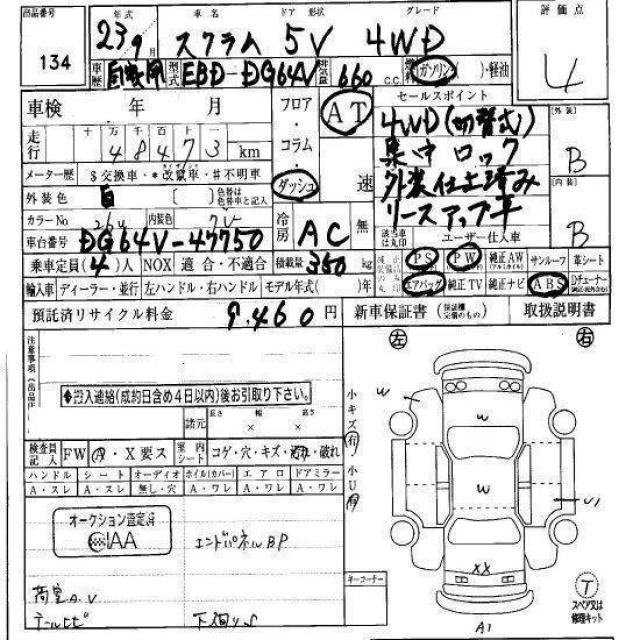 出品番号 年式 車名 ドア 形状 グレード 評価点
134 23年9月 スクラム 5V 4WD 4
車歴 自家用 型式 EBD-DG64V 排気量 660 c.c. 燃料 ガソリン ( )・軽油
車検 年 月 フロア AT セールスポイント
走行 十 万 千 百 十 一 4WD(切替式) 外装 B
48473 km コラム 集中ロック
メーター歴 $交換車・*改竄車・#不明車 ダッシュ 速 外装仕上済み 内装 B
外装色 白 [ ] 色替は色替車と記入 リースアップ車
カラーNo 26U 内装色 グレー 冷房 AC 無 該当車は丸印 ユーザー仕入車
車台番号 DG64V-47750
乗車定員(4)人 NOX 適合・不適合 積載量 350 kg PS PW 純正AW サンルーフ 革シート
輸入車 ディーラー・並行 左ハンドル・右ハンドル モデル年式( )年 エアバッグ 純正TV 純正ナビ ABS
預託済リサイクル料金 9,460 円 新車保証書 (保証欄記載のもの) 取扱説明書
注意事項(出品店) 左 右
◆搬入連絡(成約日含め4日以内)後お引取り下さい。 小キズ有 W W
諸元 長さ × 幅 × 高さ
検査員記入 FW A・X要ス 室内シート コゲ・穴・キズ・汚れ・破れ 小U有 W U1
ハンドル シート オーディオ ホイル(カバー) エアロ ドアミラー
A・スレ A・スレ 無し・穴 A・ワレ A・ワレ A・ワレ
オークション査定済
IAA エンドパネルBP XX
荷室A.U キーコーナー T
テールヒビ 下回りS A1 スペア又は修理キット